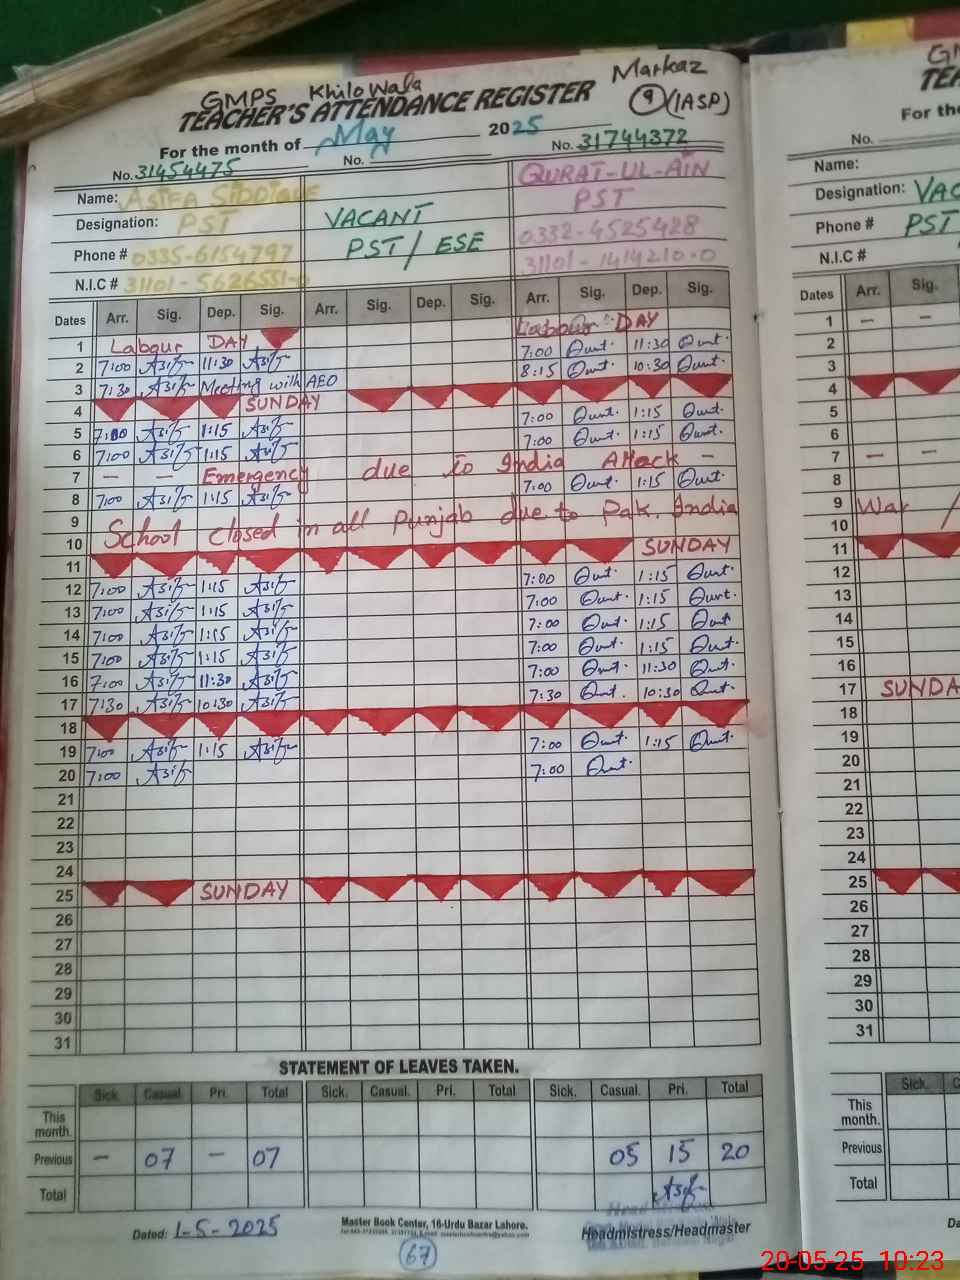 GMPS Khilo Wala Markaz
TEACHER'S ATTENDANCE REGISTER 9 (IASP)
For the month of May 2025
No. 31454475 No. No. 31744372
Name: ASIFA SIDDIQUE QURAT-UL-AIN
Designation: PST VACANT PST
Phone # 0335-6154797 PST/ESE 0332-4525428
N.I.C # 31101-5626551-0 31101-1414210-0
Dates Arr. Sig. Dep. Sig. Arr. Sig. Dep. Sig. Arr. Sig. Dep. Sig.
1 Labour DAY Labour DAY
2 7:00 Asif 11:30 Asif 7:00 Qurt. 11:30 Qurt.
3 7:30 Asif Meeting with AEO 8:15 Qurt. 10:30 Qurt.
4 SUNDAY
5 7:00 Asif 1:15 Asif 7:00 Qurt. 1:15 Qurt.
6 7:00 Asif 1:15 Asif 7:00 Qurt. 1:15 Qurt.
7 — — Emergency due to India Attack —
8 7:00 Asif 1:15 Asif 7:00 Qurt. 1:15 Qurt.
9 School closed in all Punjab due to Pak. India
10 SUNDAY
11
12 7:00 Asif 1:15 Asif 7:00 Qurt. 1:15 Qurt.
13 7:00 Asif 1:15 Asif 7:00 Qurt. 1:15 Qurt.
14 7:00 Asif 1:15 Asif 7:00 Qurt. 1:15 Qurt
15 7:00 Asif 1:15 Asif 7:00 Qurt. 1:15 Qurt.
16 7:00 Asif 11:30 Asif 7:00 Qurt. 11:30 Qurt.
17 7:30 Asif 10:30 Asif 7:30 Qurt. 10:30 Qurt.
18
19 7:00 Asif 1:15 Asif 7:00 Qurt. 1:15 Qurt.
20 7:00 Asif 7:00 Qurt.
21
22
23
24
25 SUNDAY
26
27
28
29
30
31
STATEMENT OF LEAVES TAKEN.
Sick. Casual. Pri. Total Sick. Casual. Pri. Total Sick. Casual. Pri. Total
This month.
Previous — 07 — 07 05 15 20
Total
Asif
Dated: 1-5-2025 Master Book Center, 16-Urdu Bazar Lahore. Headmistress/Headmaster
67
GM
TEA
For the
No.
Name:
Designation: VAC
Phone # PST
N.I.C #
Dates Arr. Sig.
1 — —
2
3
4
5
6
7 — —
8
9 War /
10
11
12
13
14
15
16
17 SUNDA
18
19
20
21
22
23
24
25
26
27
28
29
30
31
Sick. C
This month.
Previous
Total
Da
20-05-25 10:23